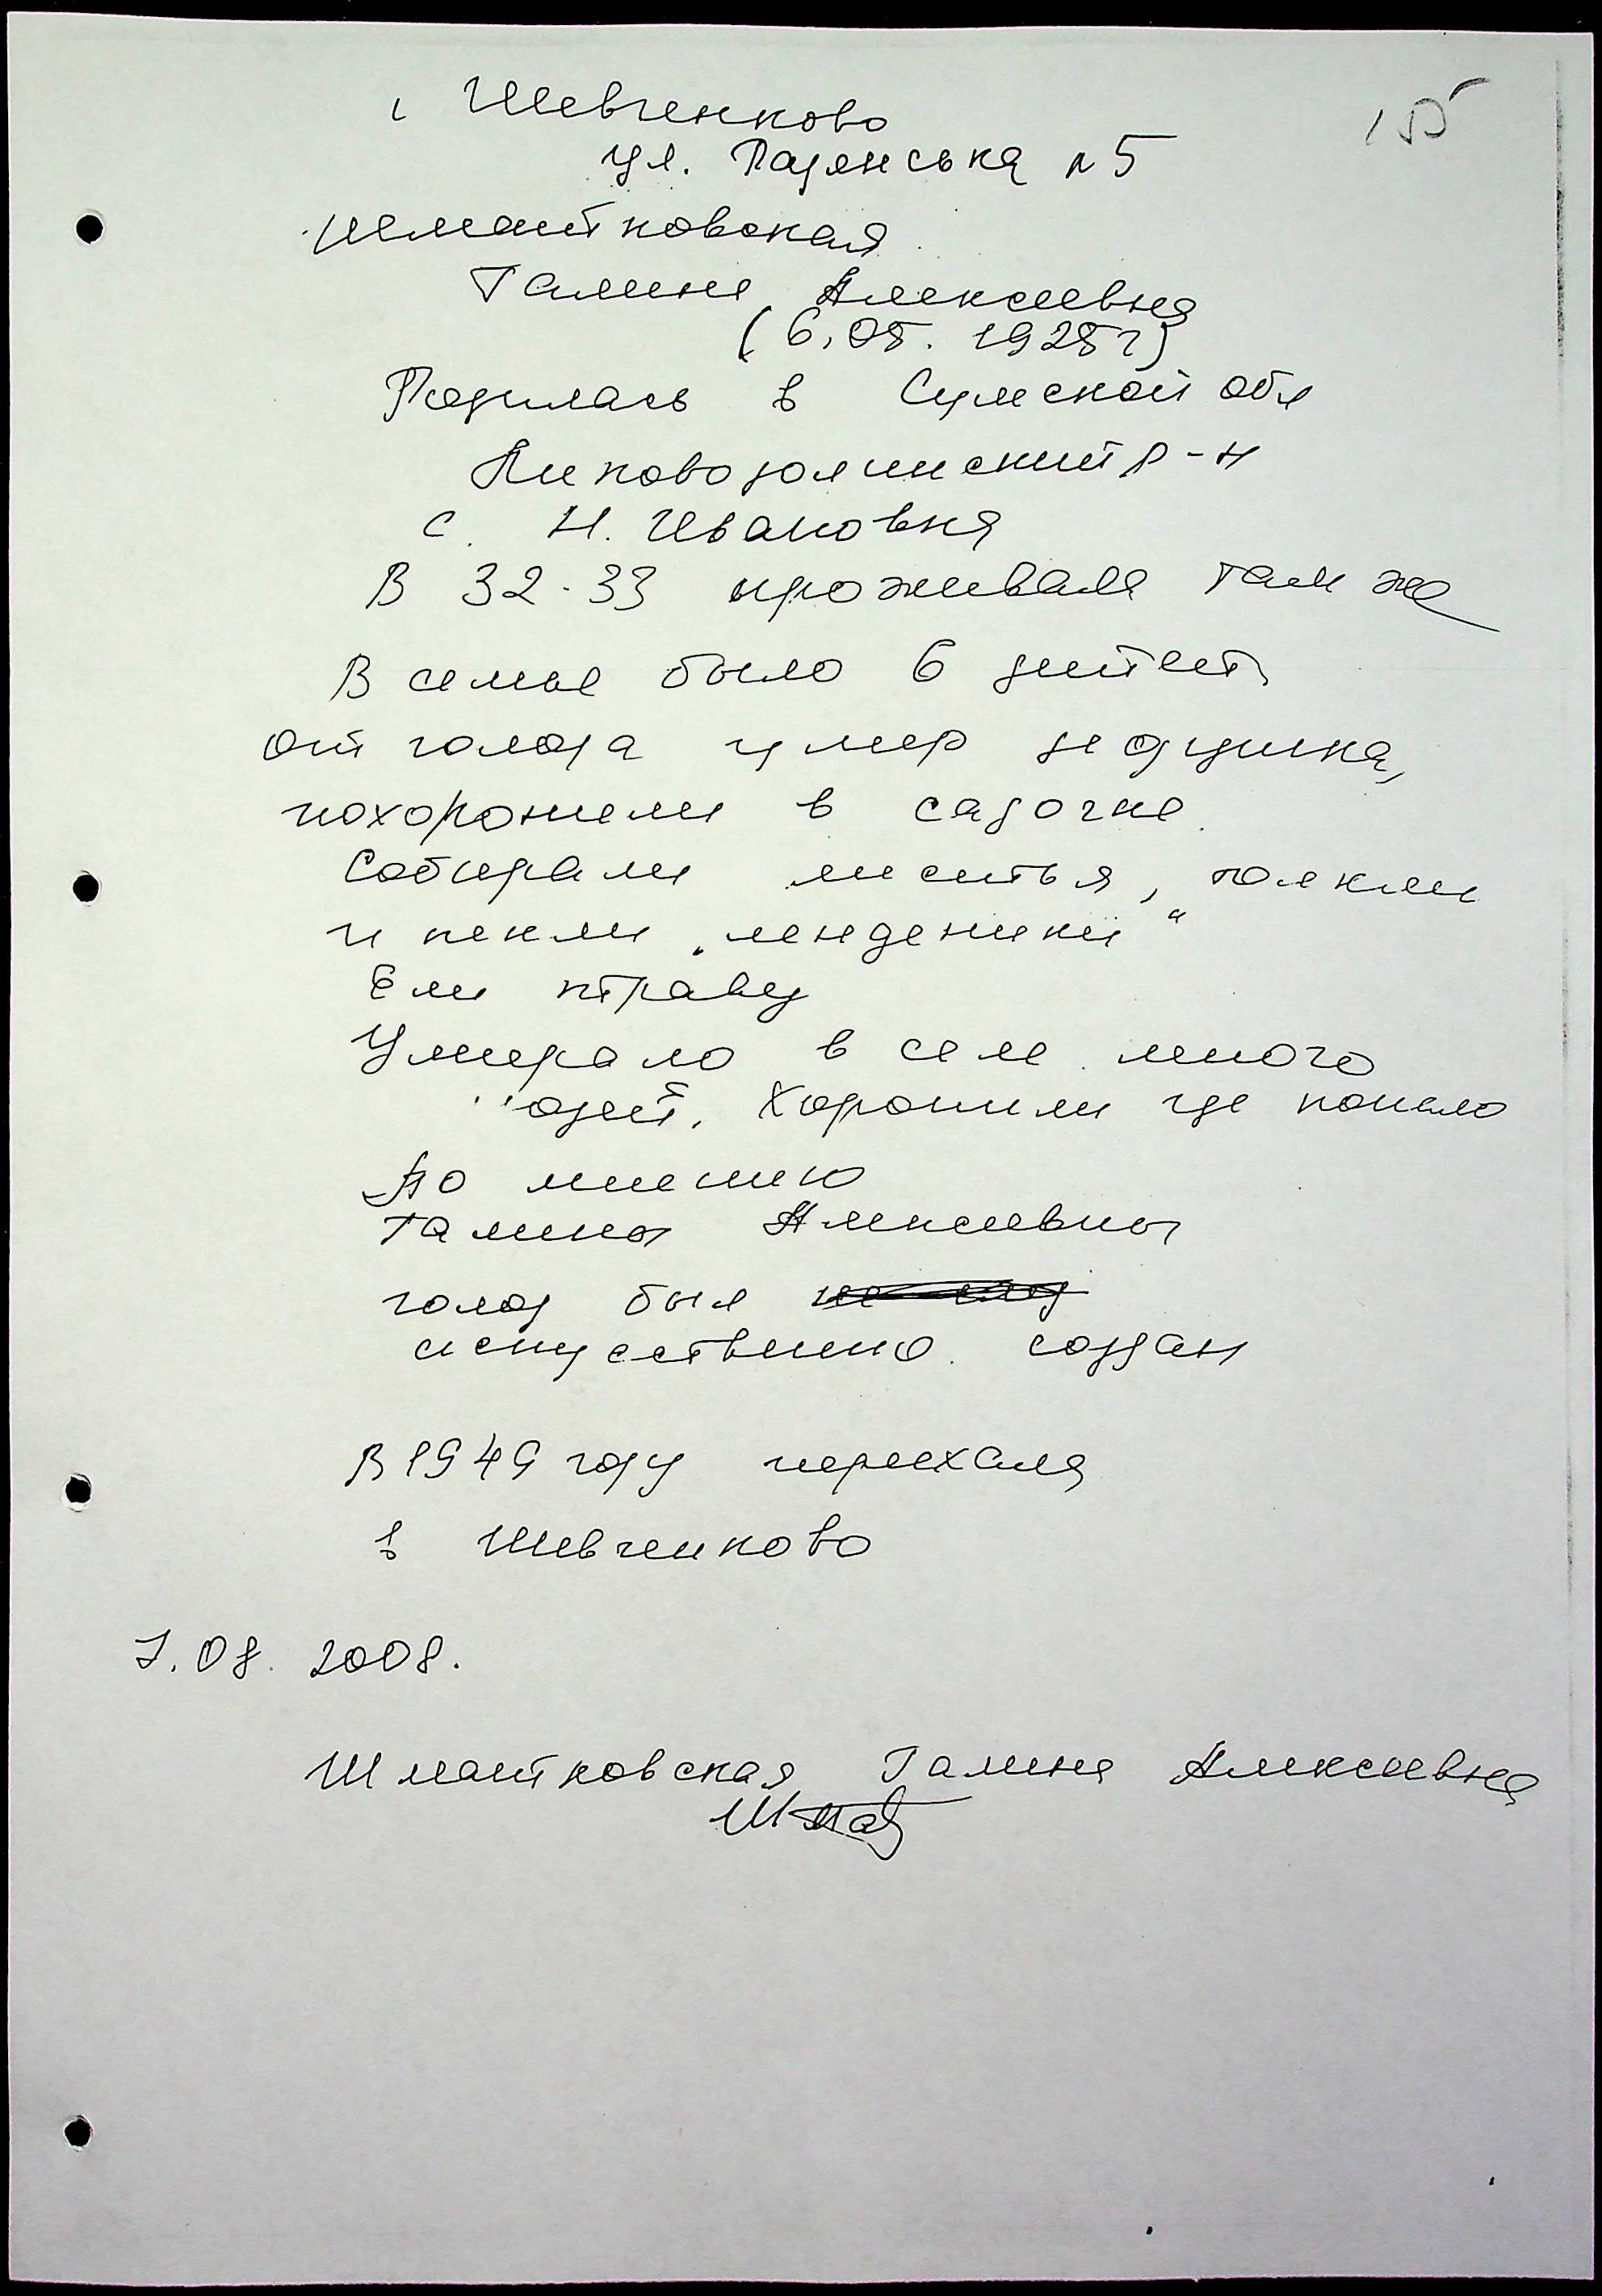 с Шевченково
155
ул. Радянська № 5
Шматковская
Галина Алексеевна
(6.05. 1925 г)
Родилась в Сумской обл
Липоводолинский р-н
с. Н. Ивановка
В 32-33 проживала там же
В семье было 6 детей,
от голода умер дедушка,
похоронили в садочке.
Собирали листья, толкли
и пекли „ленденики“
Ели траву
Умирало в селе много
людей. Хоронили где попало
По мнению
Галины Алексеевны
голод был
искуственно создан
В 1949 году переехала
в Шевченково
7.08. 2008.
Шматковская Галина Алексеевна